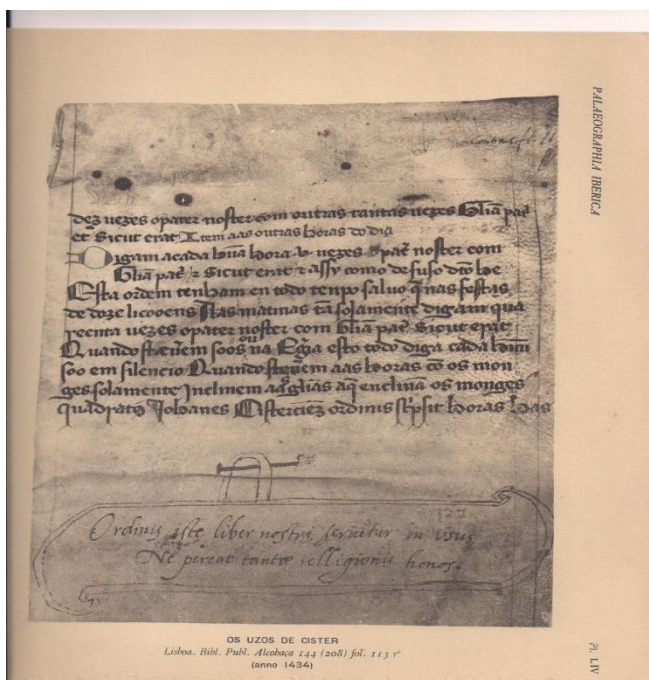 PALAEOGRAPHIA IBERICA
dez uezes opater noster com outras tantas uezes Gliã pat̃
et Sicut erat Item aas outras horas do dia
Digam acada hũa hora v uezes opat̃ noster com
Gliã pat̃ ⁊ Sicut erat ⁊ assy como desuso dto he
Esta ordem tenham en todo tenpo saluo q̃ nas festas
de doze licooens Nas matinas tã solamente digam qua
reenta uezes opater noster com Gliã pat̃ Sicut erat
Quando steuerem soos na Eg̃ia esto todo diga cada huũ
soo em silencio Quando steuerem aas horas cõ os mon
ges solamente Jnclinem aas glias aq̃ enclinã os monges
Johanes Cisterciẽz ordinis sc̃psit horas has
Ordinis iste liber nostri seruitur in vsus
Ne pereat tantæ relligionis honos.
OS UZOS DE CISTER
Lisboa. Bibl. Publ. Alcobaça 144 (208) fol. 113 rº
(anno 1434)
Pl. LIV